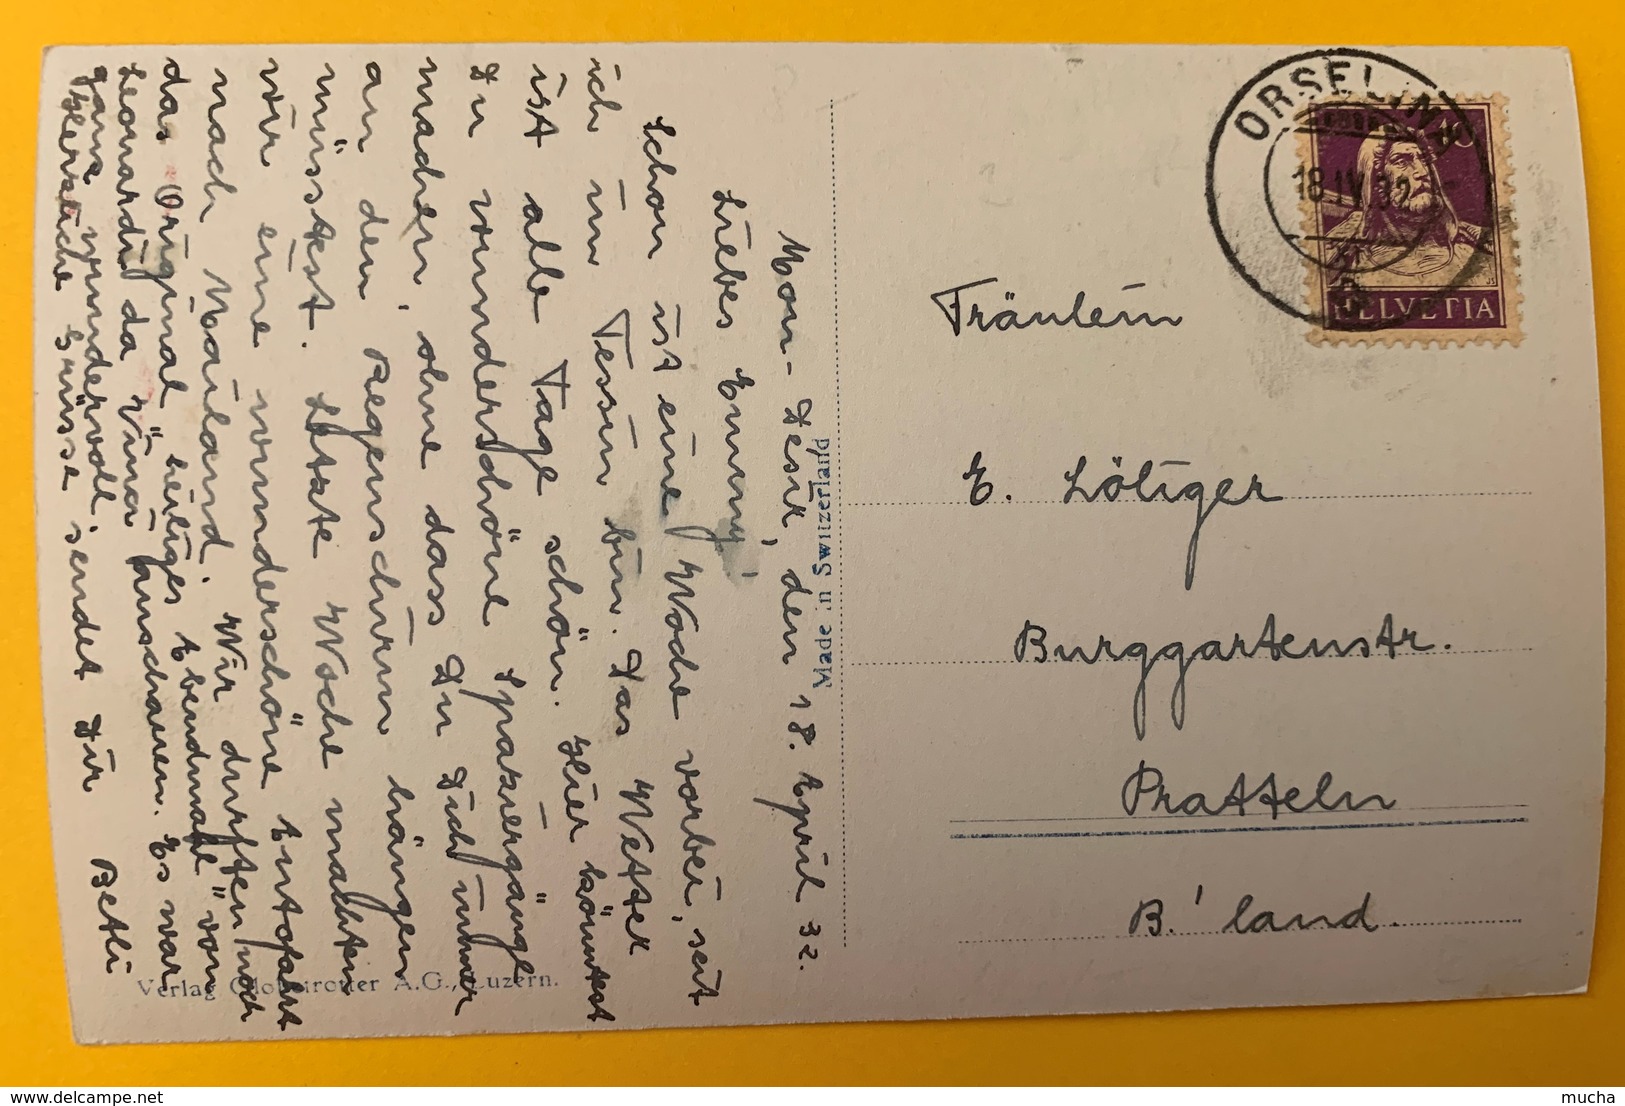 Mon-Désir, den 18. April 32.
Liebes Emmy!
Schon ist eine Woche vorbei, seit
ich im Tessin bin. Das Wetter
ist alle Tage schön. Hier könntest
Du wunderschöne Spaziergänge
machen, ohne dass Du Dich immer
an den Regenschirm hängen
müsstest. Letzte Woche machten
wir eine wunderschöne Autofahrt
nach Mailand. Wir durften noch
das "Original heiliges Abendmahl" von
Leonardi da Vinci anschauen. Es war
ganz wundervoll.
Herzliche Grüsse sendet Dir Betli
Made in Switzerland
Verlag Globetrotter A.G., Luzern.
ORSELINA
18.IV.32
10
HELVETIA
Fräulein
E. Löliger
Burggartenstr.
Pratteln
B.'land.
delcampe.net
mucha